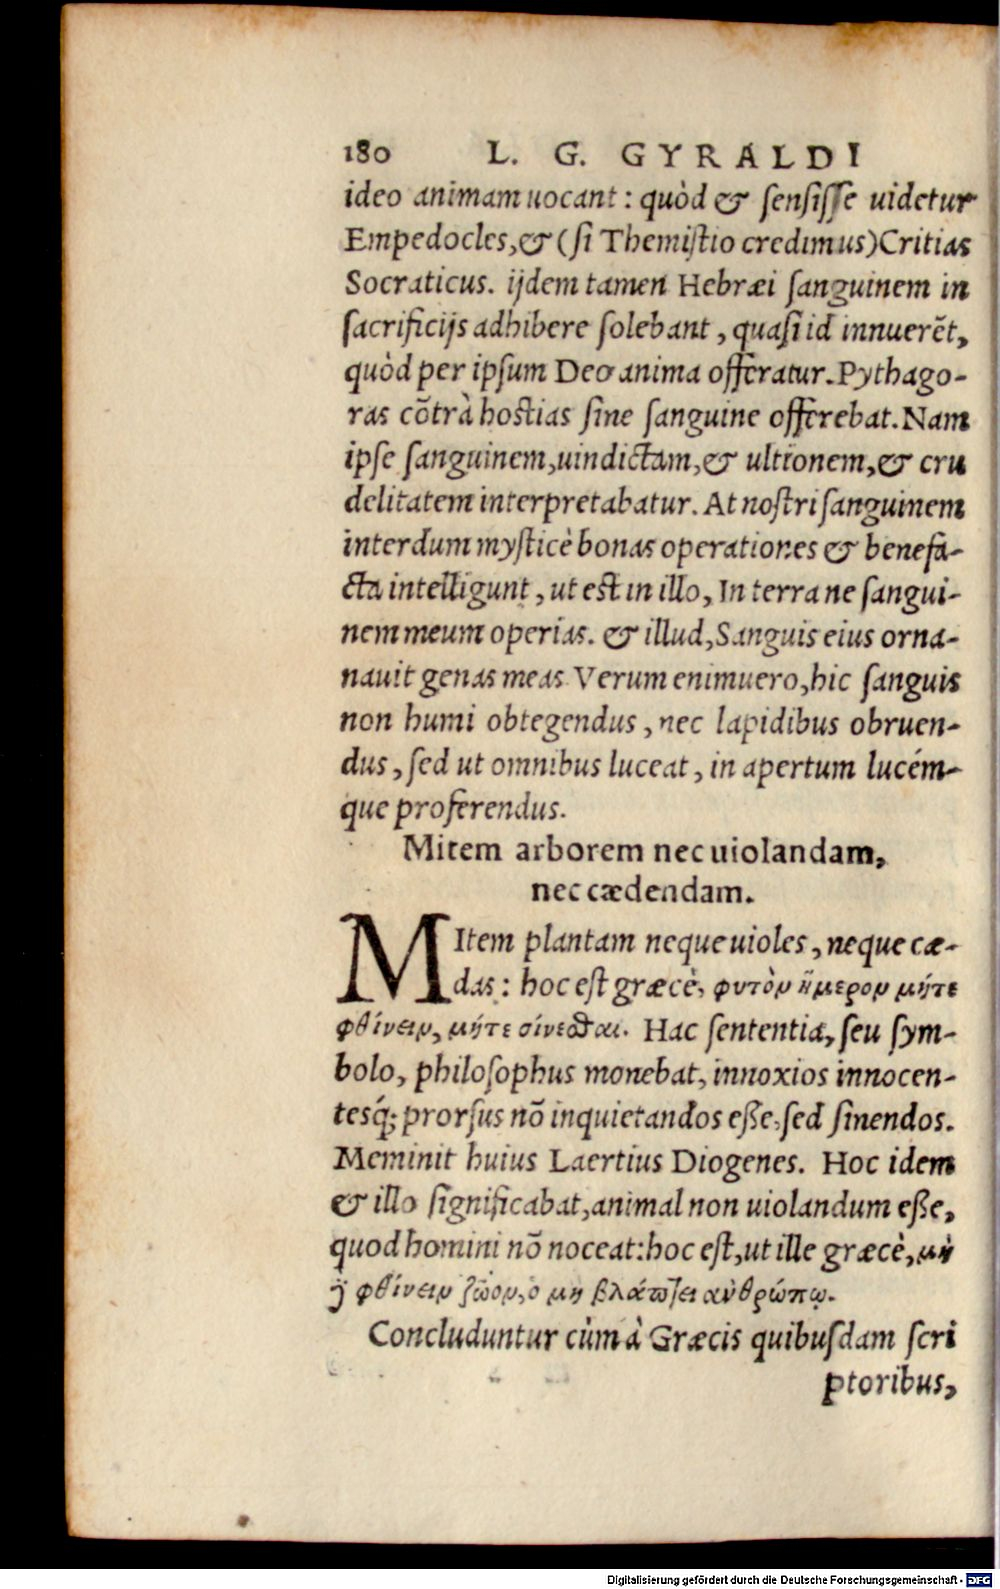 180 L. G. GYRALDI
ideo animam uocant: quòd & sensisse uidetur
Empedocles, & (si Themistio credimus) Critias
Socraticus. ijdem tamen Hebræi sanguinem in
sacrificijs adhibere solebant, quasi id innuerēt,
quòd per ipsum Deo anima offeratur. Pythago-
ras cōtrà hostias sine sanguine offerebat. Nam
ipse sanguinem, uindictam, & ultionem, & cru
delitatem interpretabatur. At nostri sanguinem
interdum mysticè bonas operationes & benefa-
cta intelligunt, ut est in illo, In terra ne sangui-
nem meum operias. & illud, Sanguis eius orna-
nauit genas meas Verum enimuero, hic sanguis
non humi obtegendus, nec lapidibus obruen-
dus, sed ut omnibus luceat, in apertum lucém-
que proferendus.
Mitem arborem nec uiolandam,
nec cædendam.
MItem plantam neque uioles, neque cæ-
das: hoc est græcè, φυτὸν ἥμερον μήτε
φθίνειν, μήτε σίνεσθαι. Hac sententia, seu sym-
bolo, philosophus monebat, innoxios innocen-
tesq́; prorsus nō inquietandos eße, sed sinendos.
Meminit huius Laertius Diogenes. Hoc idem
& illo significabat, animal non uiolandum eße,
quod homini nō noceat: hoc est, ut ille græcè, μὴ
φθίνειν ζῶον, ὁ μὴ βλάπτει ἀνθρώπῳ.
Concluduntur cùm à Græcis quibusdam scri
ptoribus,
Digitalisierung gefördert durch die Deutsche Forschungsgemeinschaft - DFG